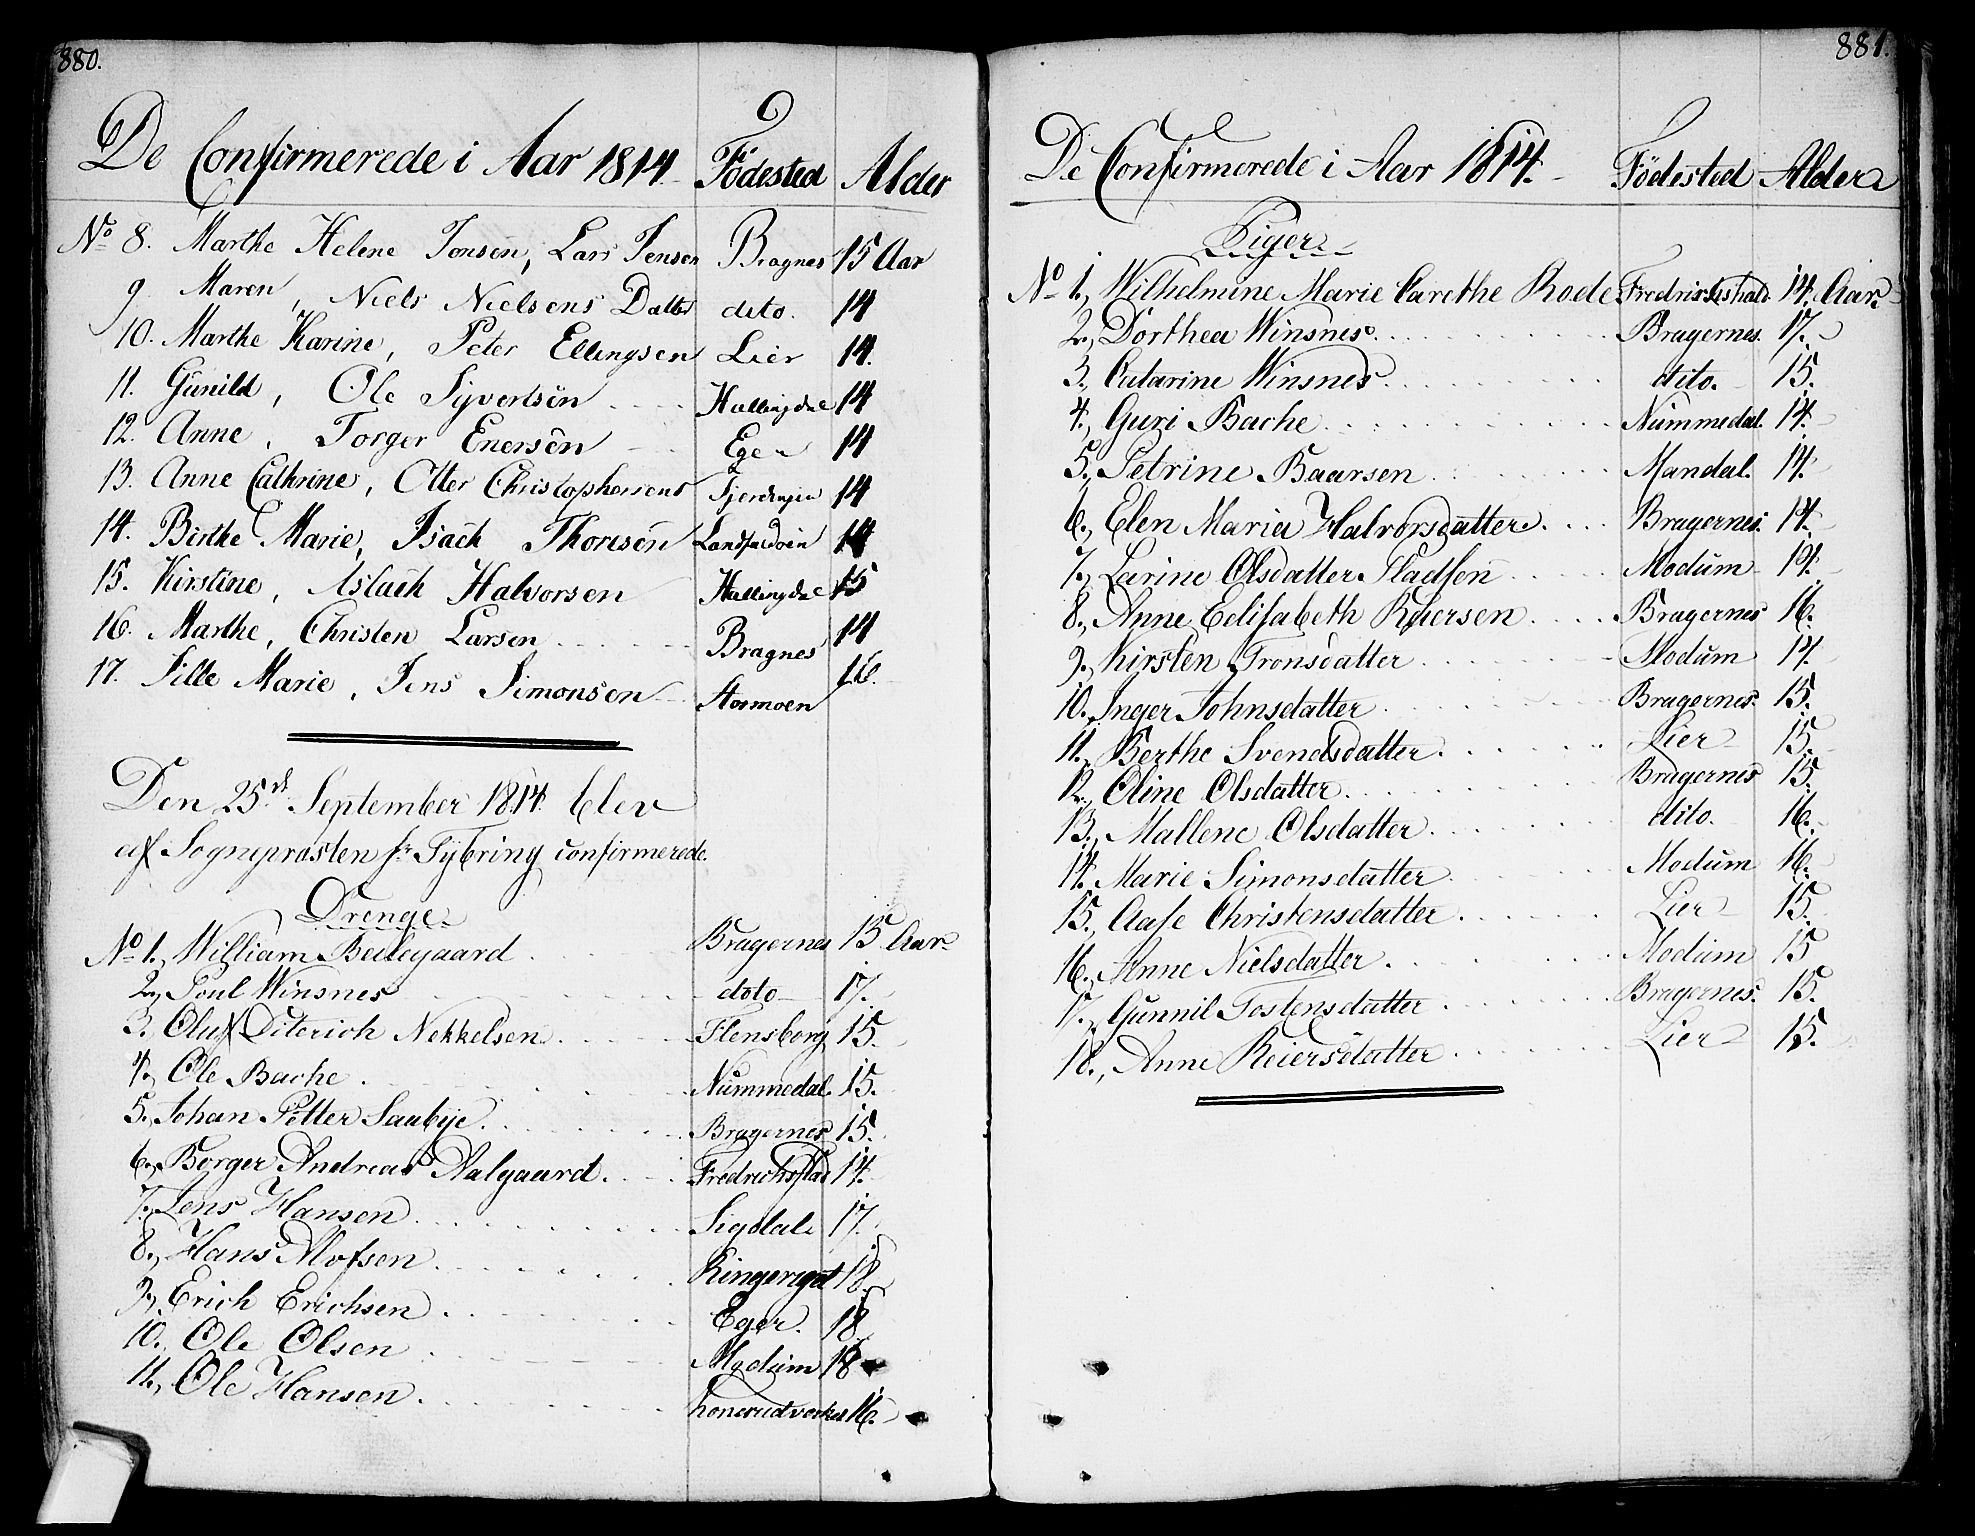 880.
De Confirmerede i Aar 1814 Födested Alder
No 8. Marthe Helene Jonsen, Lars Jensen Bragnes 15 Aar
9 Maren, Niels Nielsens Datter dito. 14
10. Marthe Karine, Peter Ellingsen Lier 14.
11. Gunild, Ole Syvertsen Hallingdal 14
12. Anne, Torger Enersen Eger 14
13. Anne Cathrine, Otter Christophersens Fjerdingen 14
14. Birthe Marie, Isach Thoresen Landfaldöen 14
15. Kirstine, Aslach Halvorsen Hallingdal 15
16. Marthe, Christen Larsen Bragnes 14
17. Sille Marie, Jens Simonsen Stormoen 16.
Den 25de September 1814 blev
af Sogneprosten hr Tybring confirmerede.
Drenge
No 1., William Beilegaard Bragernes 15 Aar
2., Poul Winsnes doto 17.
3. Oluf Diterich Nekkelsen Flensborg 15.
4., Ole Bache Nummedal. 15.
5., Johan Petter Saubye. Bragernes 15.
6., Borger Andreas Aalgaard. Fredrichsstad 14.
7., Jens Hansen Sigdal 17.
8., Hans Alofsen Ringeriget 18.
9., Erich Erichsen Eger. 18
10., Ole Olsen Modum 18
11., Ole Hansen honerudverket 16.
881.
De Confirmerede i Aar 1814. Födested Alder
Piger
No 1., Wilhelmine Marie Carethe Rode Fredrikshald 14. Aar.
2., Dorthea Winsnes. Bragernes. 17.
3., Catarine Winsnes dito. 15.
4., Guri Bache Nummedal. 14.
5., Petrine Baarsen Mandal. 14.
6., Elen Maria Halvorsdatter. Bragernes. 14.
7., Larine Olsdatter Stadsen Modum 14.
8., Anne Eelisabeth Reiersen Bragernes 16.
9., Kirsten Tronsdatter Modum 14.
10., Inger Johnsdatter Bragernes. 15.
11., Berthe Svendsdatter Lier 15.
12., Oline Olsdatter Bragernes 15.
13., Mallene Olsdatter dito. 16.
14. Marie Simonsdatter Modum 16.
15., Aase Christensdatter Lier 15.
16., Anne Nielsdatter Modum 15
17., Gunnil Tostensdatter Bragernes. 15.
18., Anne Reiersdatter Lier 15.